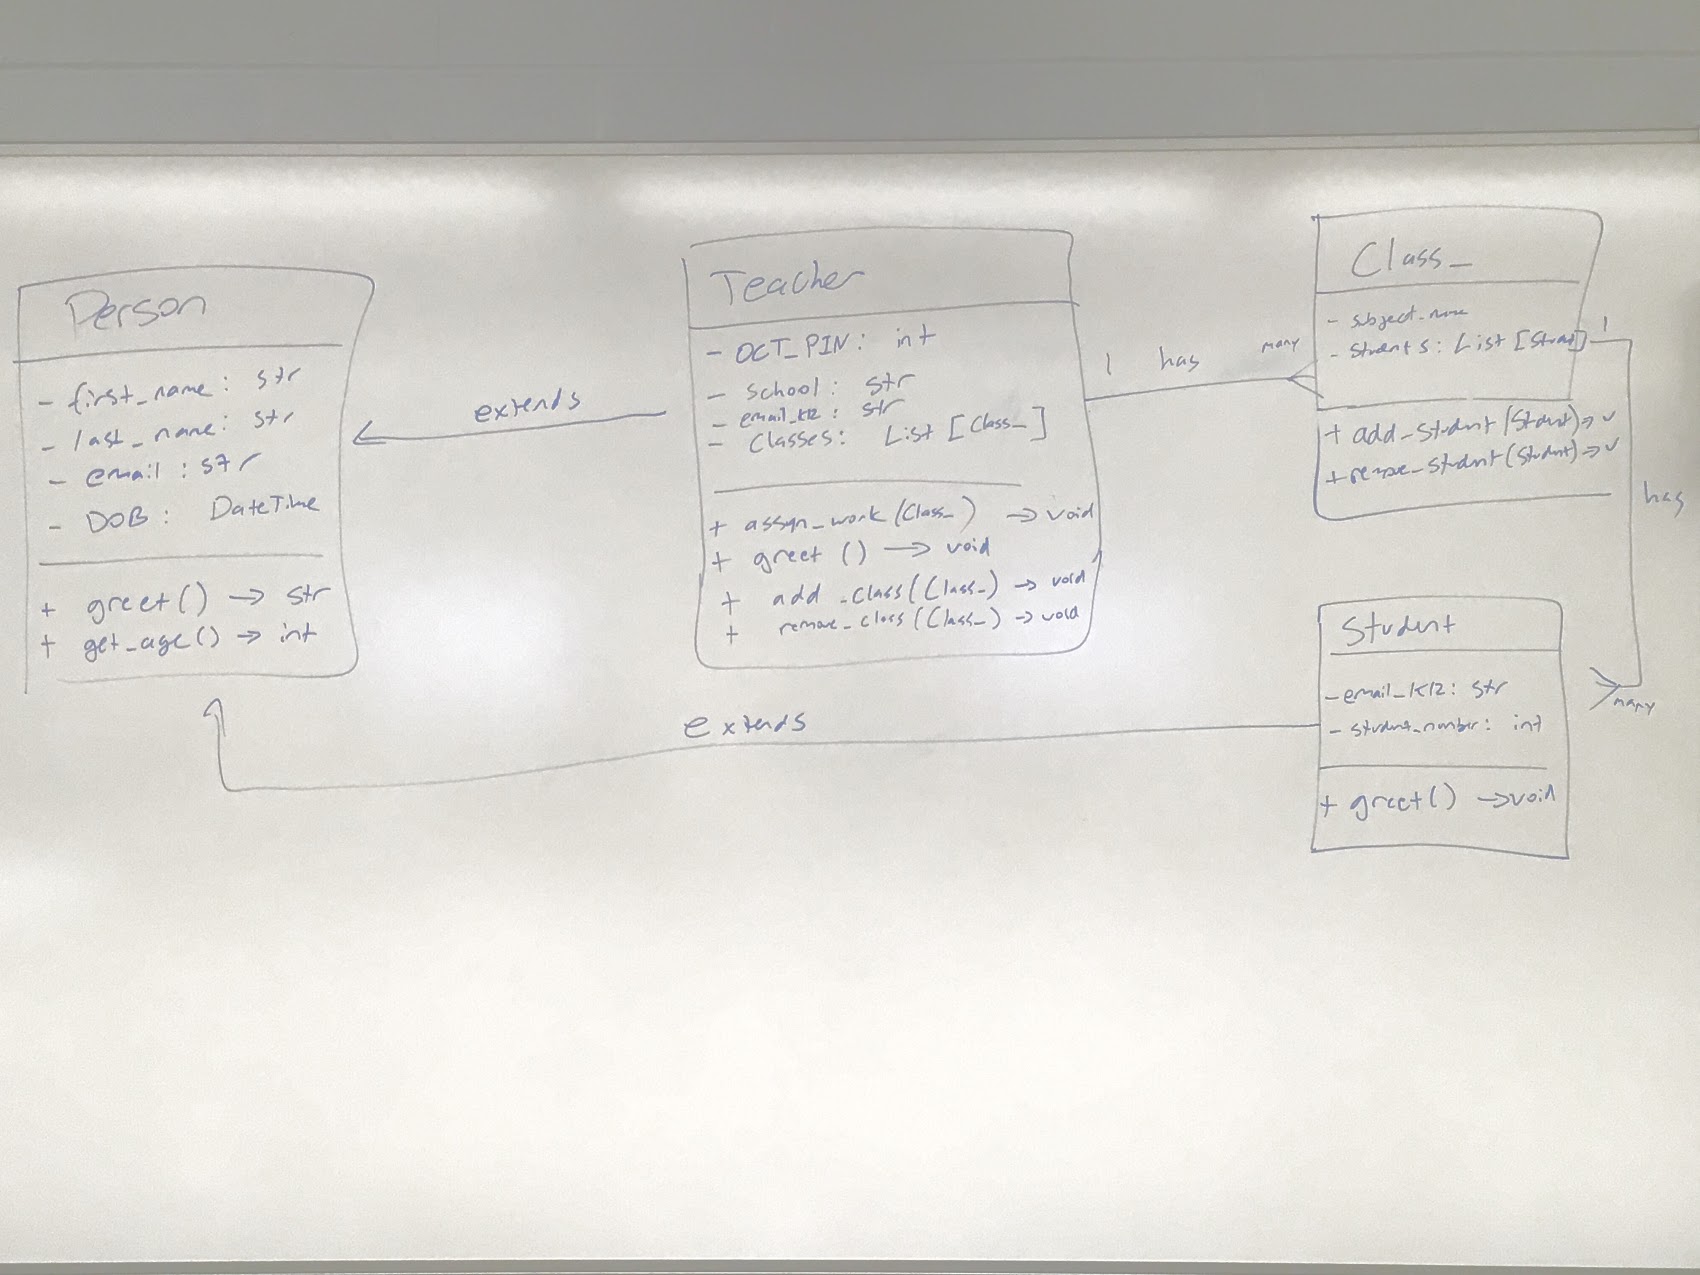 Person
- first_name: str
- last_name: str
- email: str
- DOB: DateTime
+ greet() → str
+ get_age() → int
extends
Teacher
- OCT_PIN: int
- school: str
- email_K12: str
- Classes: List [Class_]
+ assign_work (Class_) → void
+ greet () → void
+ add_class (Class_) → void
+ remove_class (Class_) → void
1 has many
Class_
- subject_name
- Students: List [Student]
+ add_student (Student) → v
+ remove_student (Student) → v
1
has
many
Student
- email_K12: str
- student_number: int
+ greet() → void
extends